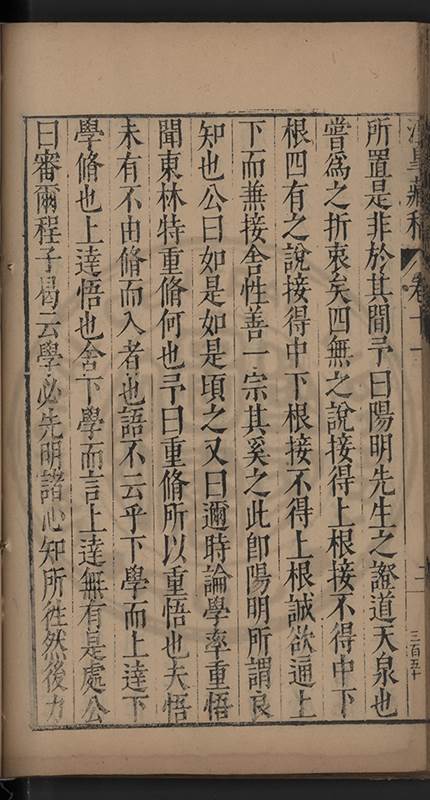 涇臯藏稿 卷十一 二 三百五十
所置是非於其間予曰陽明先生之證道天泉也
嘗爲之折衷矣四無之說接得上根接不得中下
根四有之說接得中下根接不得上根誠欲通上
下而兼接舍性善一宗其奚之此卽陽明所謂良
知也公曰如是如是頃之又曰邇時論學率重悟
聞東林特重脩何也予曰重脩所以重悟也夫悟
未有不由脩而入者也語不云乎下學而上達下
學脩也上達悟也舍下學而言上達無有是處公
曰審爾程子曷云學必先明諸心知所徃然後力